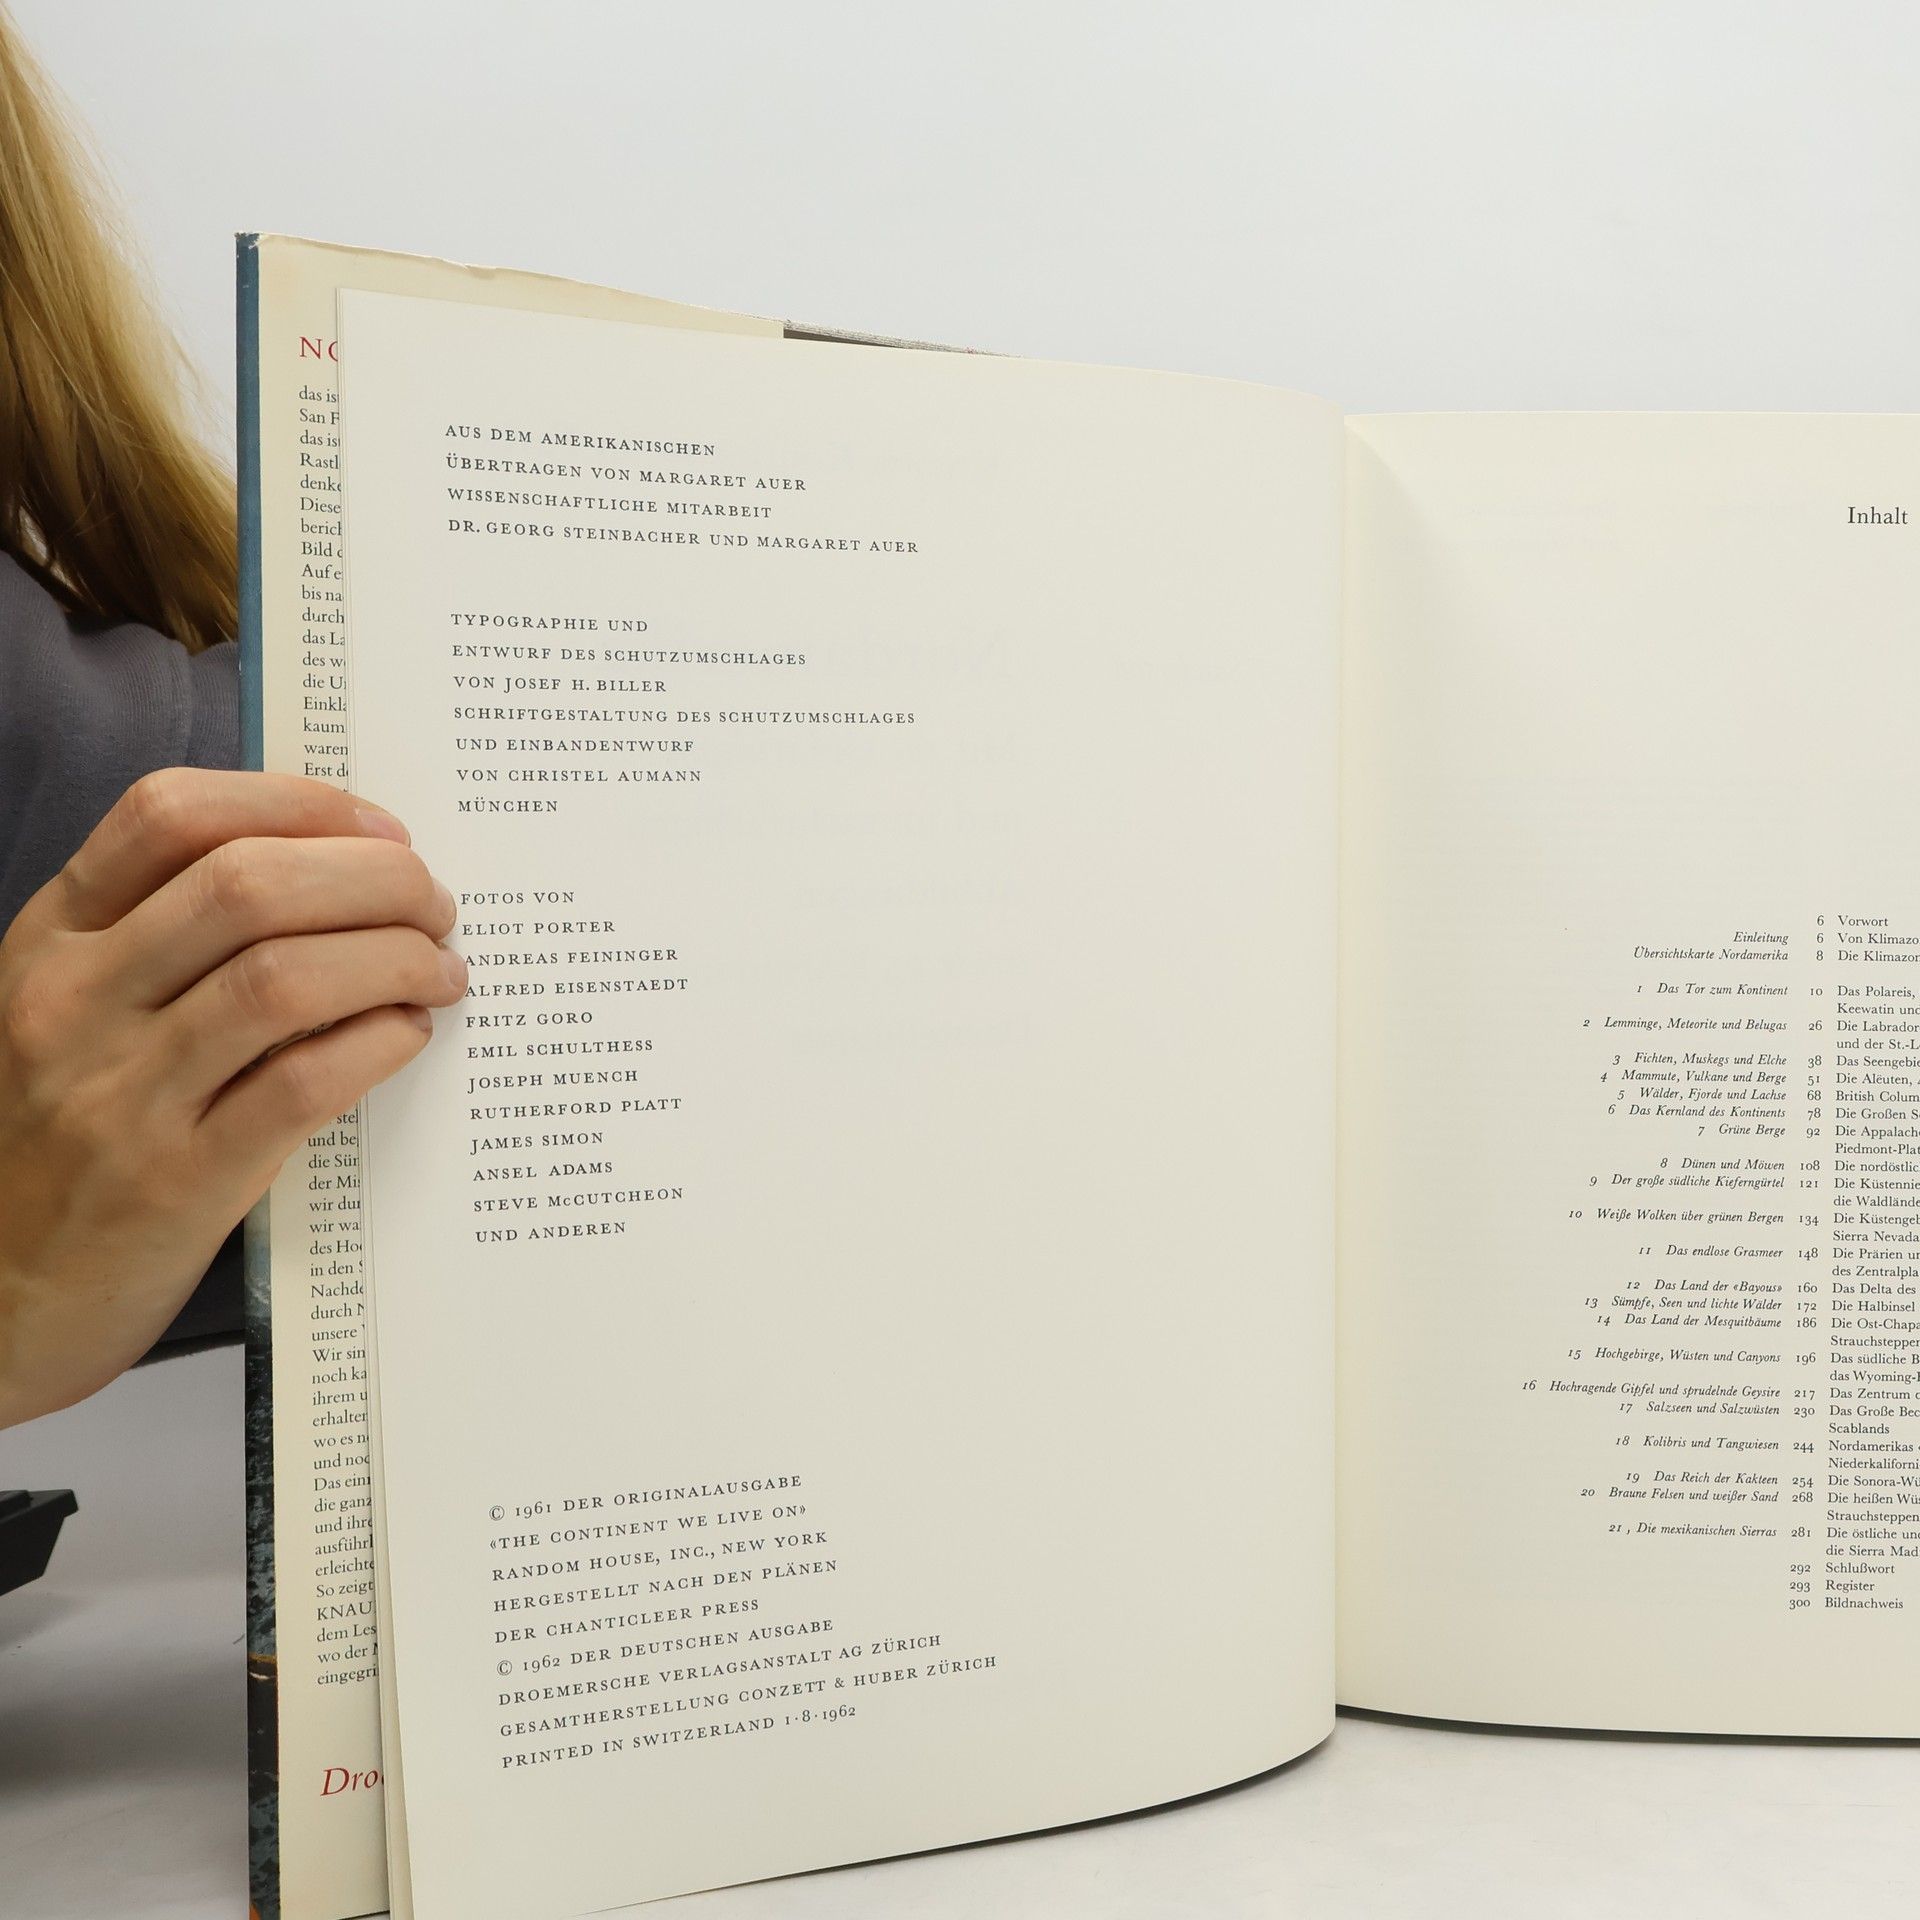 das
San
das
denke
Diese
Bild
Auf
bis
durch
das
des
die
kaum
waren
Erst
und
die
der
wir
wir
des
in den
durch
unsere
Wir
noch
ihrem
wo es
und
Das
die
und
So zeigt
dem
wo der
AUS DEM AMERIKANISCHEN
ÜBERTRAGEN VON MARGARET AUER
WISSENSCHAFTLICHE MITARBEIT
DR. GEORG STEINBACHER UND MARGARET AUER
TYPOGRAPHIE UND
ENTWURF DES SCHUTZUMSCHLAGES
VON JOSEF H. BILLER
SCHRIFTGESTALTUNG DES SCHUTZUMSCHLAGES
UND EINBANDENTWURF
VON CHRISTEL AUMANN
MÜNCHEN
FOTOS VON
ELIOT PORTER
ANDREAS FEININGER
ALFRED EISENSTAEDT
FRITZ GORO
EMIL SCHULTHESS
JOSEPH MUENCH
RUTHERFORD PLATT
JAMES SIMON
ANSEL ADAMS
STEVE McCUTCHEON
UND ANDEREN
© 1961 DER ORIGINALAUSGABE
«THE CONTINENT WE LIVE ON»
RANDOM HOUSE, INC., NEW YORK
HERGESTELLT NACH DEN PLÄNEN
DER CHANTICLEER PRESS
© 1962 DER DEUTSCHEN AUSGABE
DROEMERSCHE VERLAGSANSTALT AG ZÜRICH
GESAMTHERSTELLUNG CONZETT & HUBER ZÜRICH
PRINTED IN SWITZERLAND 1·8·1962
Inhalt
6 Vorwort
Einleitung 6 Von Klimazo
Übersichtskarte Nordamerika 8 Die Klimazon
1 Das Tor zum Kontinent 10 Das Polareis,
Keewatin und
2 Lemminge, Meteorite und Belugas 26 Die Labrador
und der St.-L
3 Fichten, Muskegs und Elche 38 Das Seengebie
4 Mammute, Vulkane und Berge 51 Die Alëuten, A
5 Wälder, Fjorde und Lachse 68 British Colum
6 Das Kernland des Kontinents 78 Die Großen S
7 Grüne Berge 92 Die Appalache
Piedmont-Plat
8 Dünen und Möwen 108 Die nordöstlic
9 Der große südliche Kieferngürtel 121 Die Küstennie
die Waldlände
10 Weiße Wolken über grünen Bergen 134 Die Küstengeb
Sierra Nevada
11 Das endlose Grasmeer 148 Die Prärien un
des Zentralpla
12 Das Land der «Bayous» 160 Das Delta des
13 Sümpfe, Seen und lichte Wälder 172 Die Halbinsel
14 Das Land der Mesquitbäume 186 Die Ost-Chapa
Strauchsteppen
15 Hochgebirge, Wüsten und Canyons 196 Das südliche B
das Wyoming-B
16 Hochragende Gipfel und sprudelnde Geysire 217 Das Zentrum d
17 Salzseen und Salzwüsten 230 Das Große Bec
Scablands
18 Kolibris und Tangwiesen 244 Nordamerikas
Niederkaliforni
19 Das Reich der Kakteen 254 Die Sonora-Wü
20 Braune Felsen und weißer Sand 268 Die heißen Wüs
Strauchsteppen
21 , Die mexikanischen Sierras 281 Die östliche und
die Sierra Mad
292 Schlußwort
293 Register
300 Bildnachweis